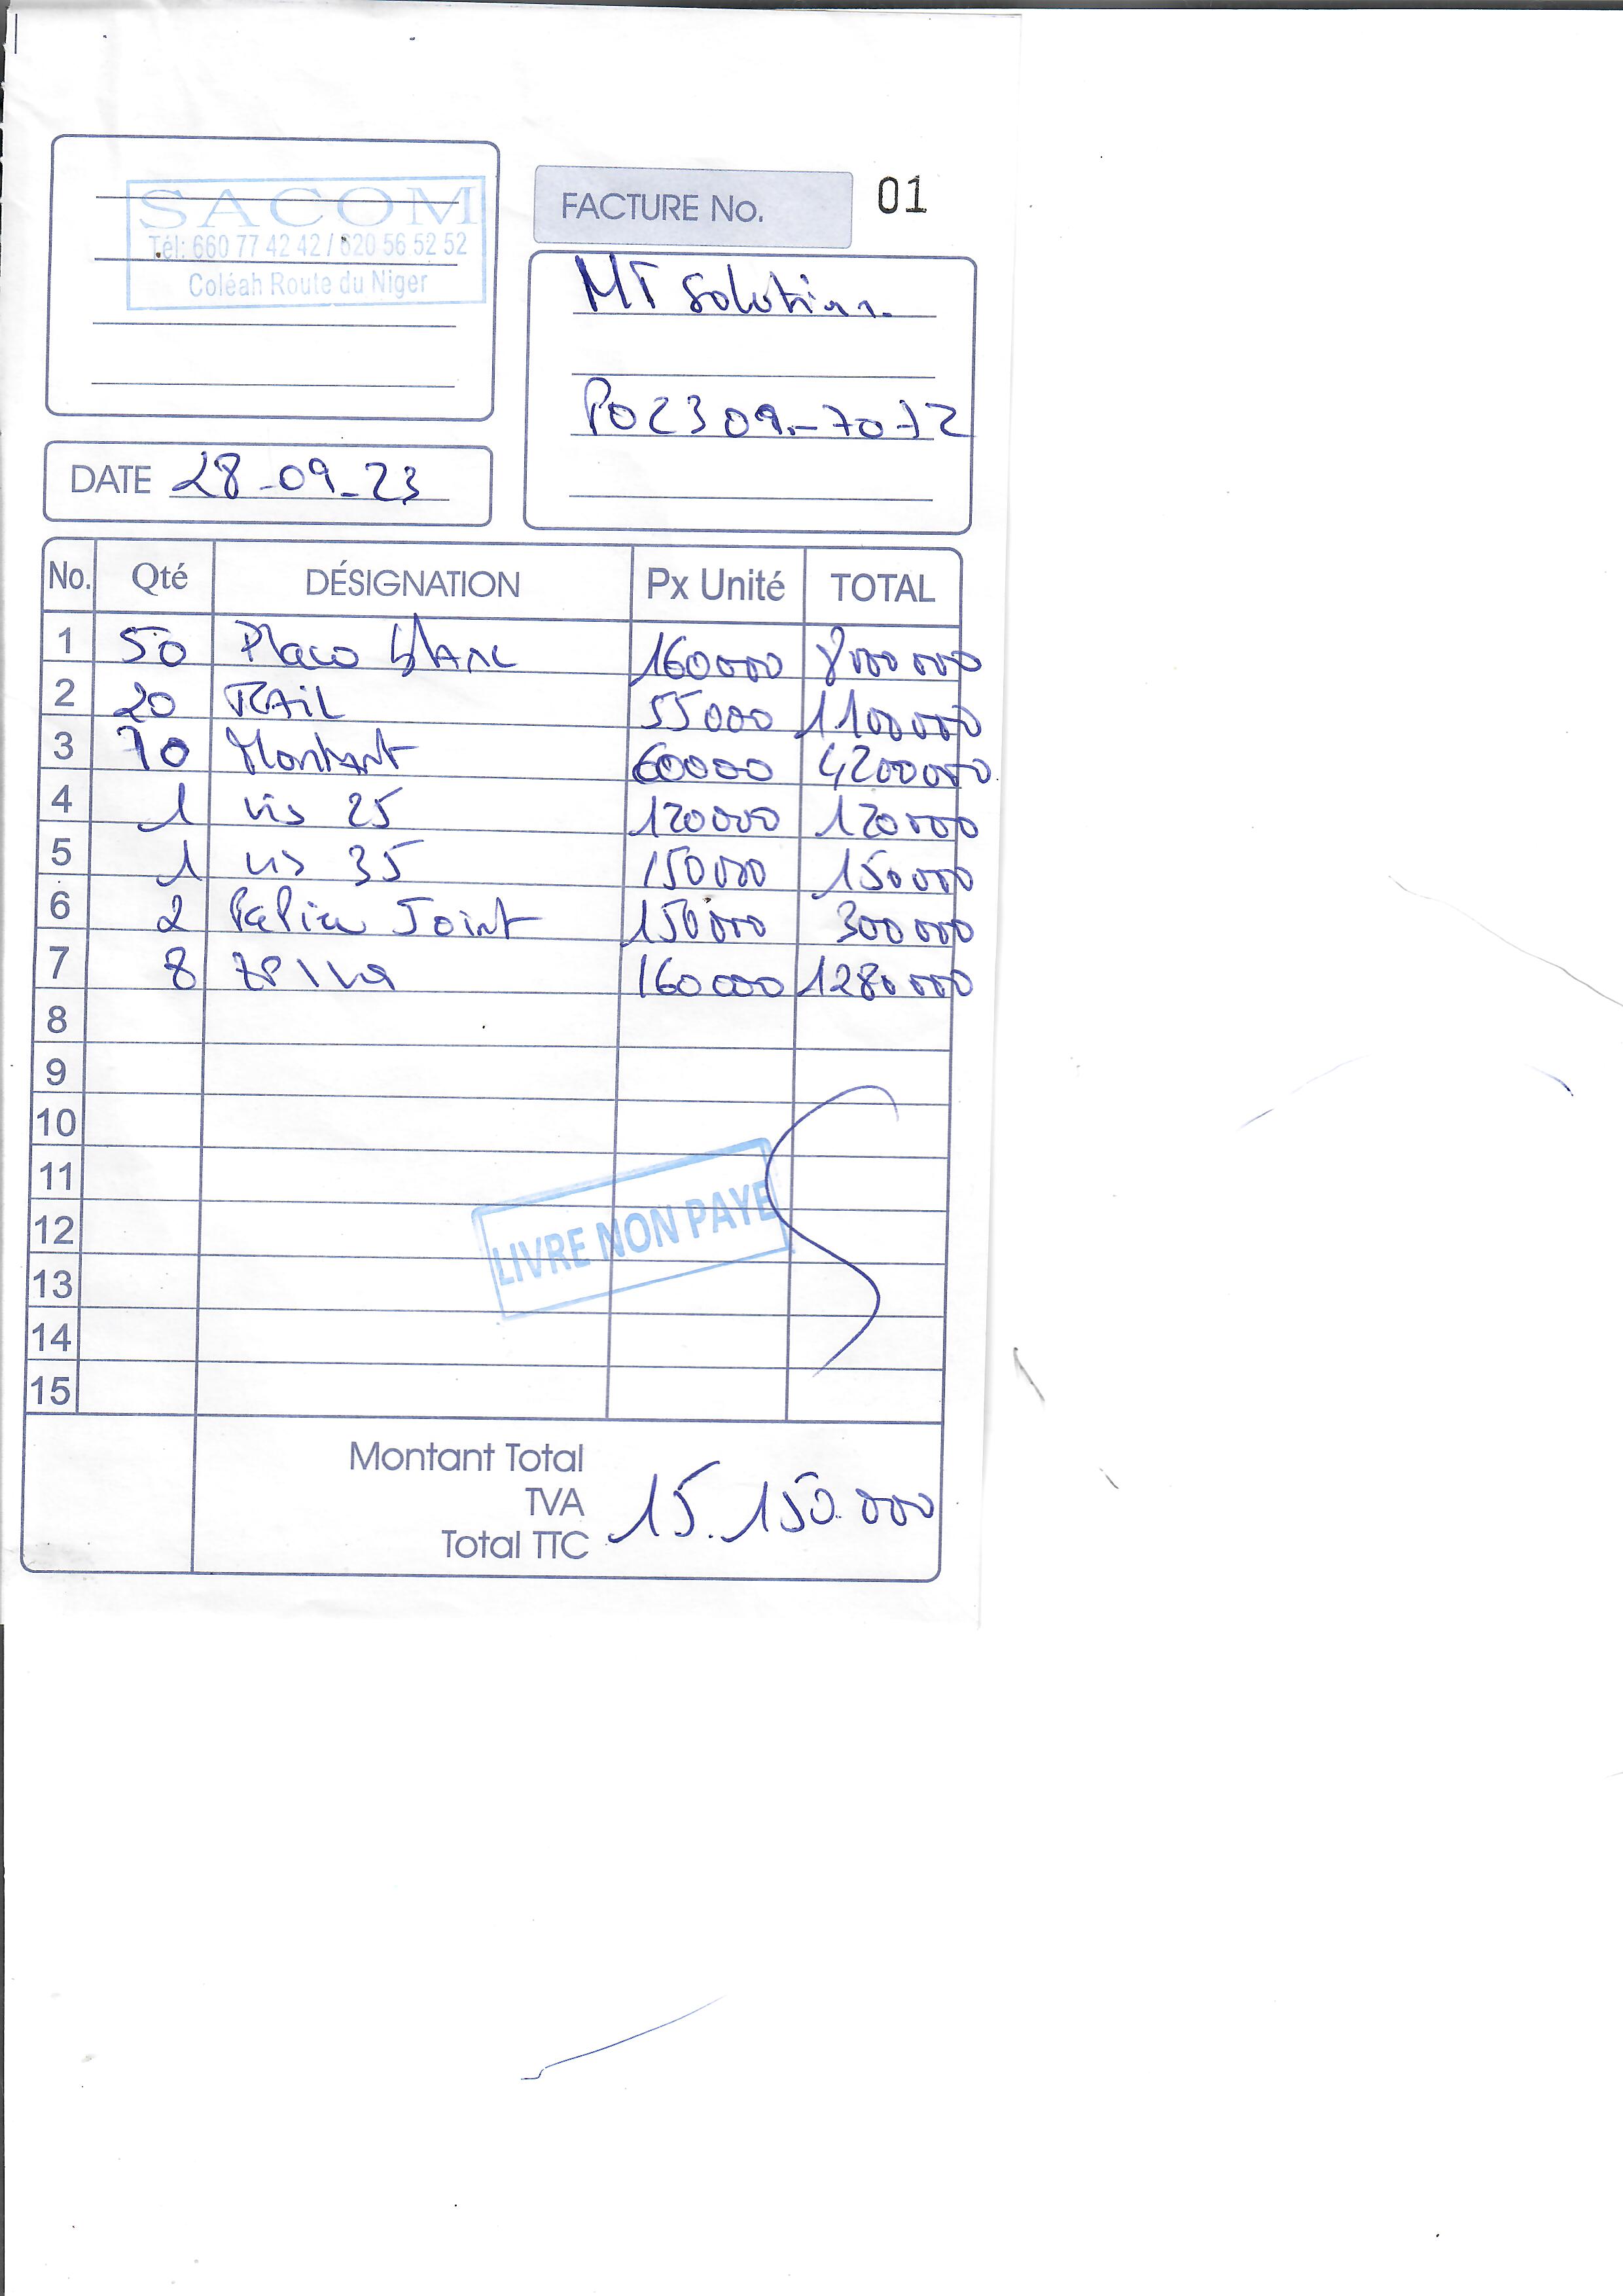 SACOM
Tél: 660 77 42 42 / 620 56 52 52
Coléah Route du Niger
FACTURE No. 01
MT Solution
PO2309-7072
DATE 28-09-23
No. Qté DÉSIGNATION Px Unité TOTAL
1 50 Placo blanc 160000 8000000
2 20 RAiL 55000 1100000
3 70 Montant 60000 4200000
4 1 vis 25 120000 120000
5 1 vis 35 150000 150000
6 2 Joint 150000 300000
7 8 160000 1280000
8
9
10
11
12
13
14
15
LIVRE NON PAYE
Montant Total
TVA
Total TTC
15.150.000